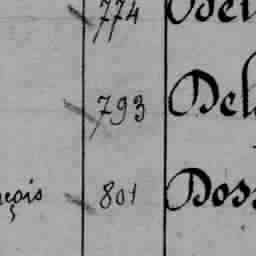 774 Del
793 Del
çois 801 Dos